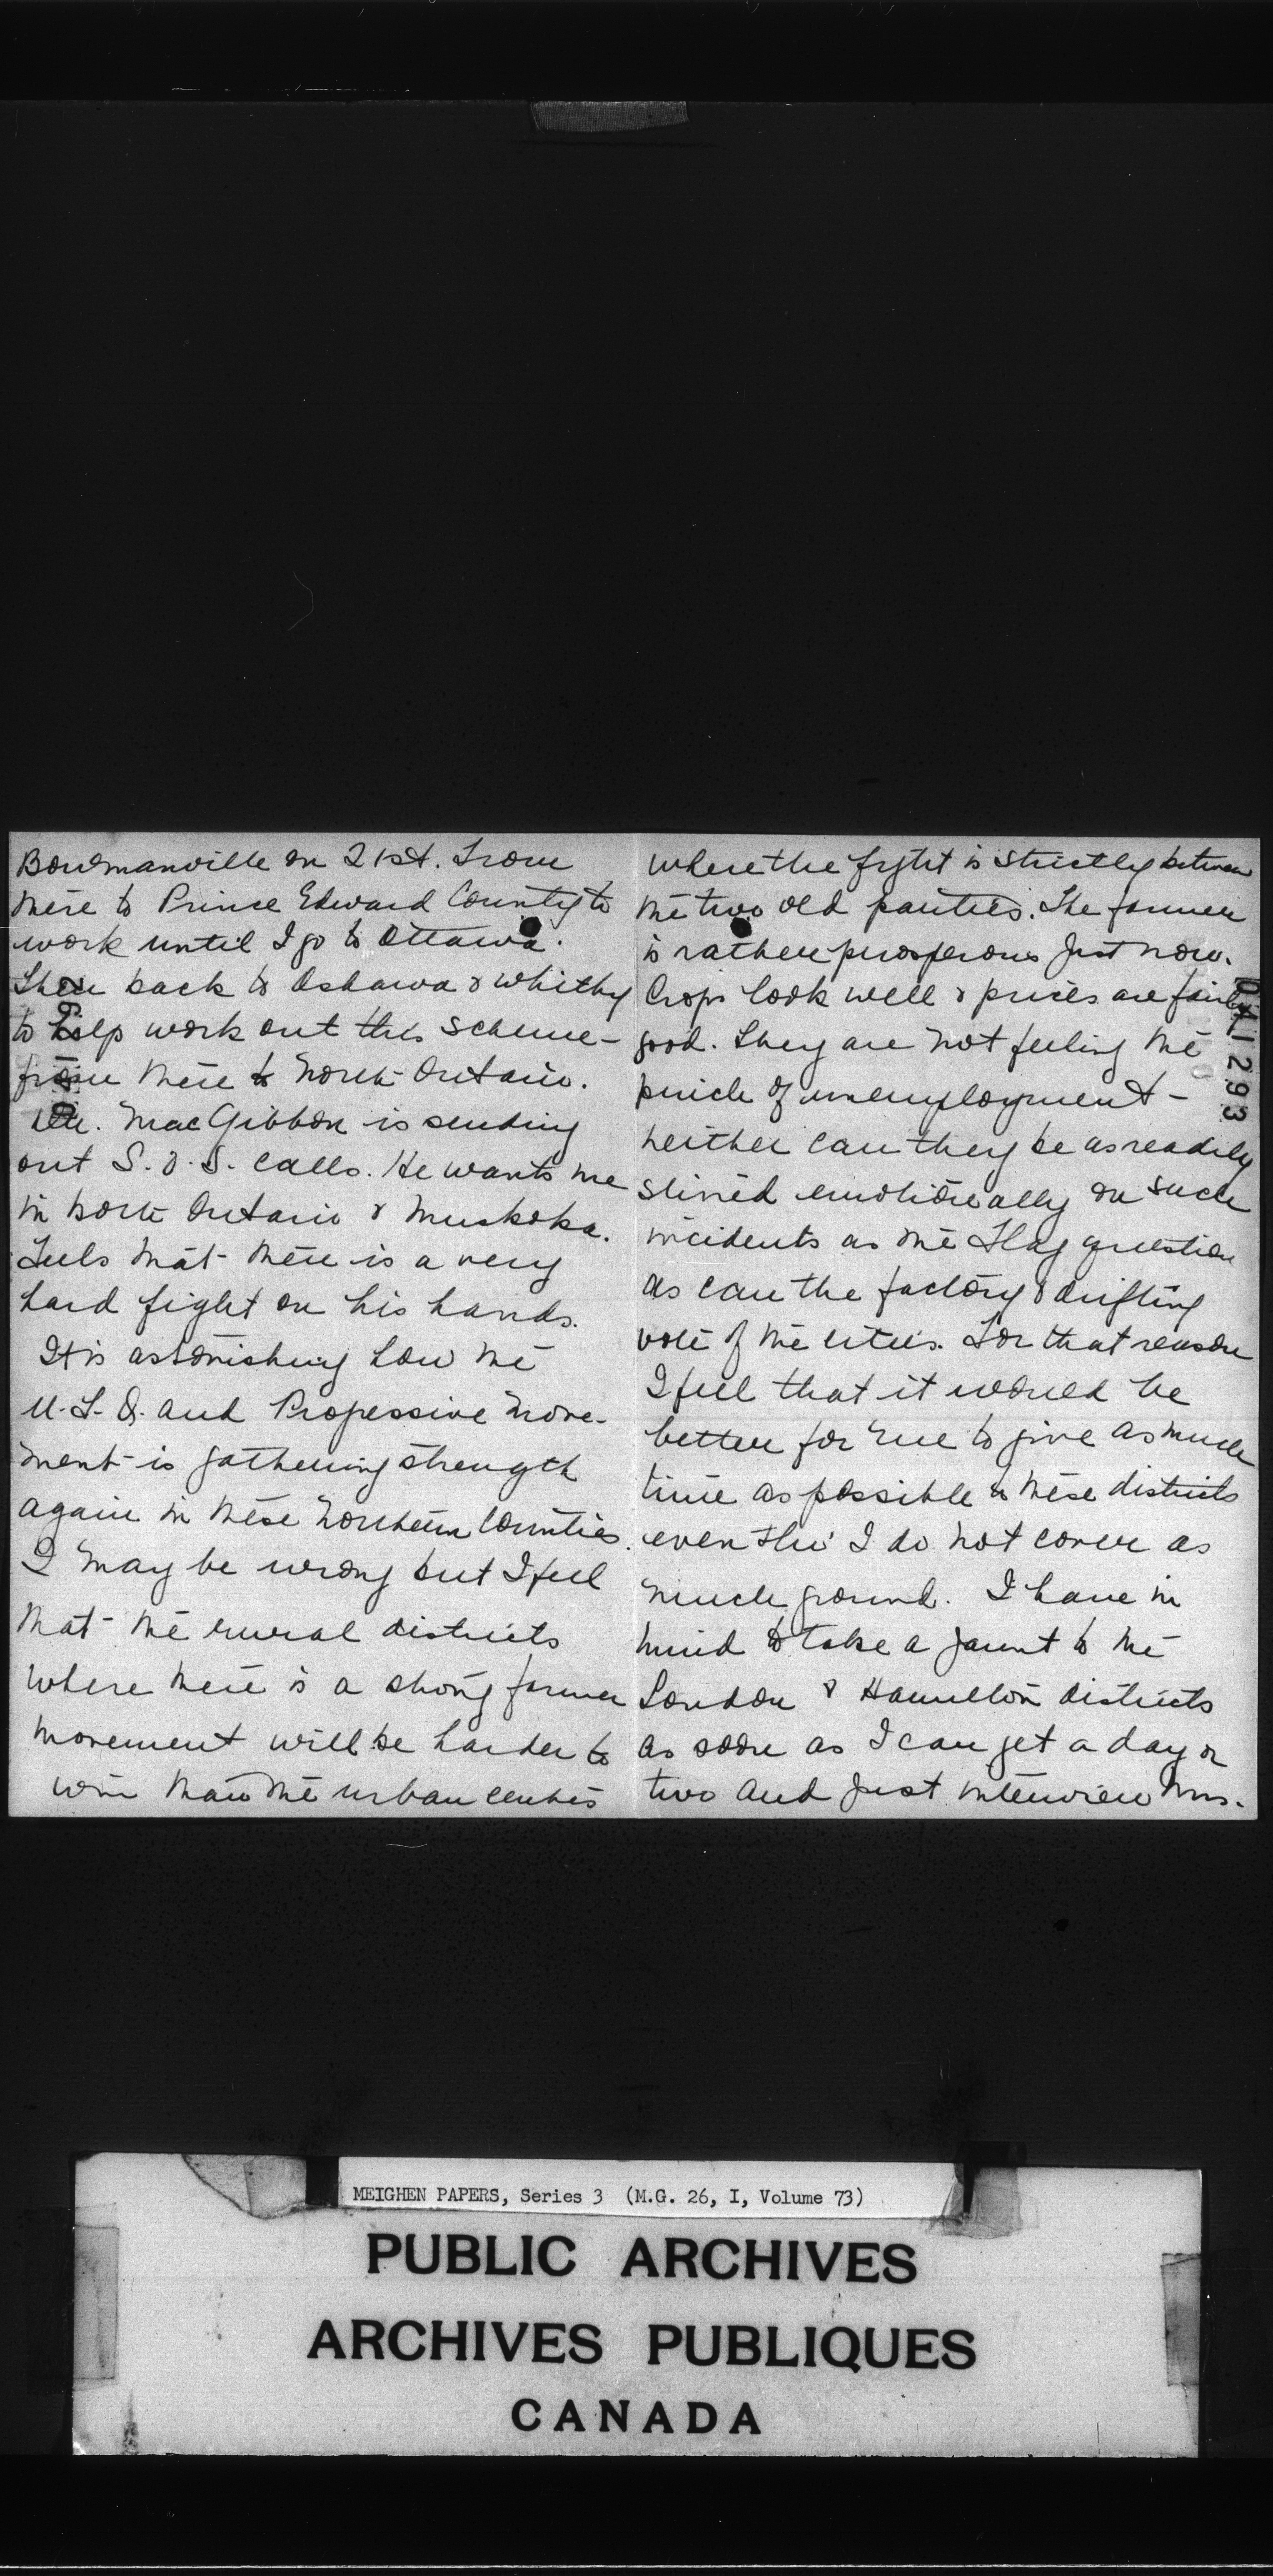 Bowmanville on 21st. From
there to Prince Edward County to
work until I go to Ottawa.
Then back to Oshawa & Whitby
to help work out this scheme-
from there to North Ontario.
MacGibbon is sending
out S.O.S. calls. He wants me
in North Ontario & Muskoka.
Feels that there is a very
hard fight on his hands.
It is astonishing how the
U.F.O. and Progessive move-
ment is gathering strength
again in these Northern Counties.
I may be wrong but I feel
that the rural districts
where there is a strong farmer
movement will be harder to
win than the urban centres
where the fight is strictly between
the two old parties. The farmer
is rather prosperous just now.
Crops look well & prices are fairly
good. They are not feeling the
pinch of unemployment -
neither can they be as readily
stirred emotionally on such
incidents as the Flag question
as can the factory & drifting
vote of the cities. For that reason
I feel that it would be
better for me to give as much
time as possible to these districts
even tho' I do not cover as
much ground. I have in
mind to take a jaunt to the
London & Hamilton districts
as soon as I can get a day or
two and just interview Mrs.
041293
MEIGHEN PAPERS, Series 3 (M.G. 26, I, Volume 73)
PUBLIC ARCHIVES
ARCHIVES PUBLIQUES
CANADA